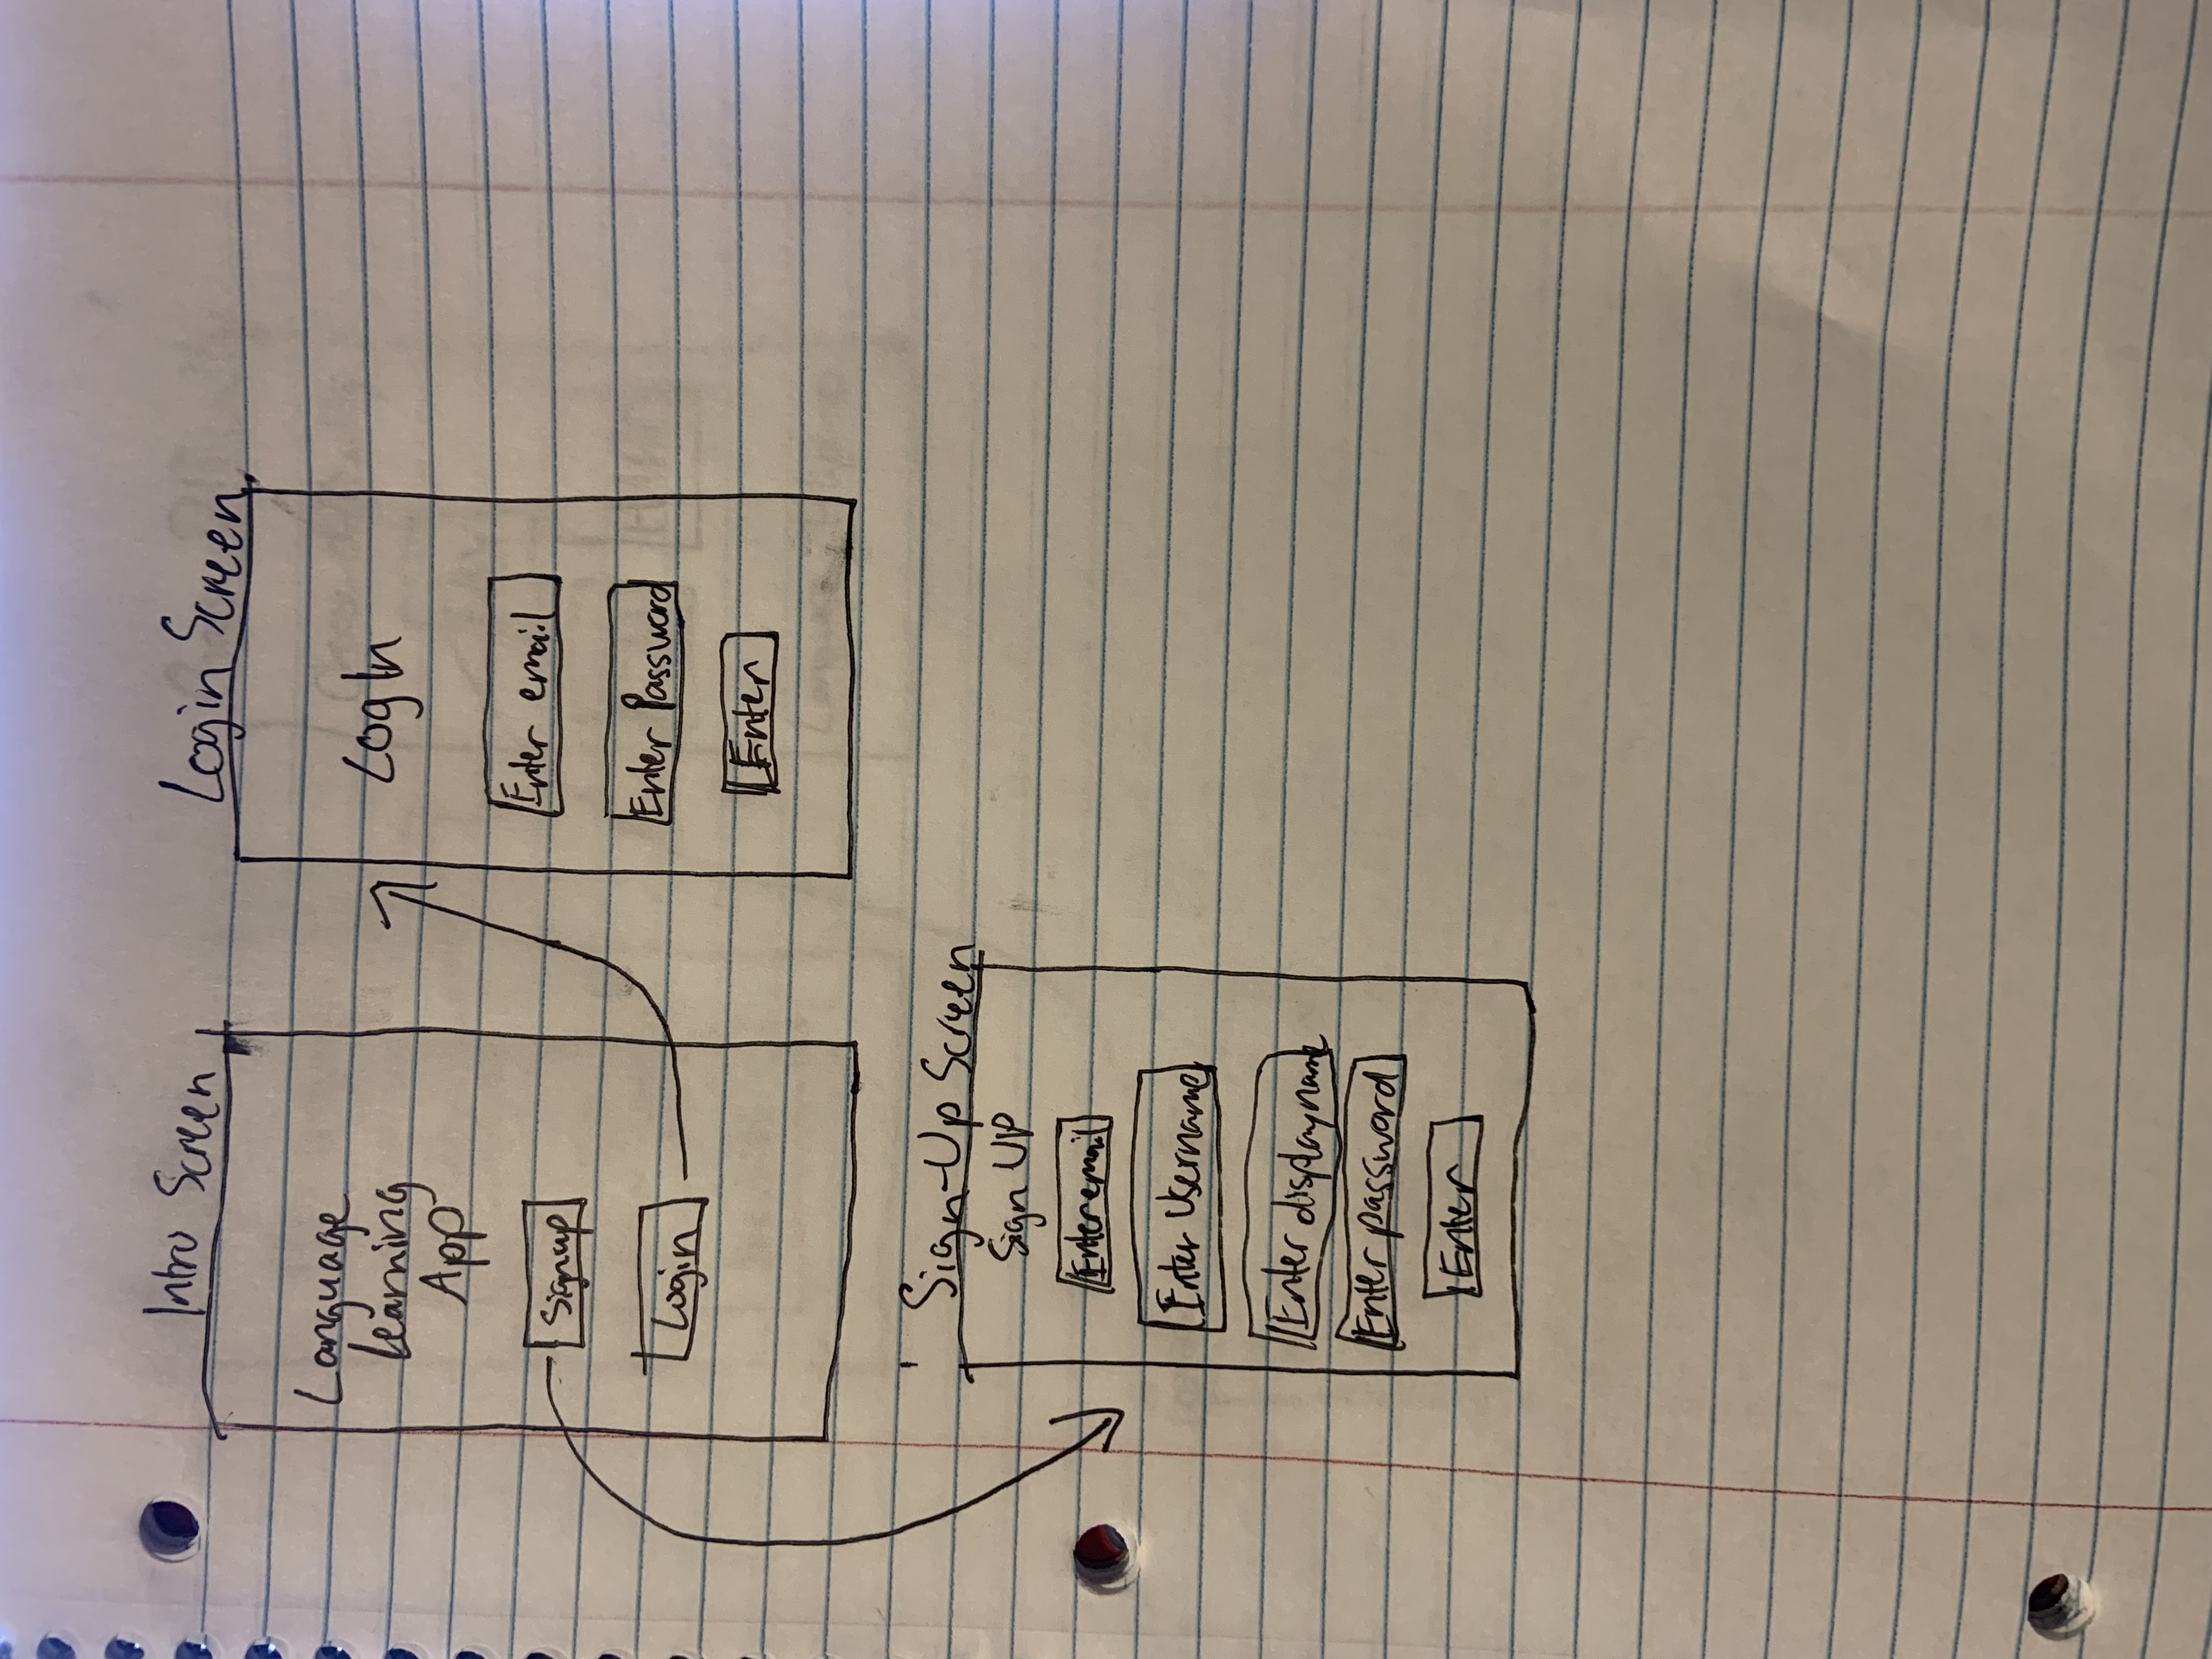 Intro Screen
Language
Learning
App
Signup
Login
Login Screen
Log In
Enter email
Enter Password
Enter
Sign-Up Screen
Sign UP
Enter email
Enter Username
Enter displayname
Enter password
Enter